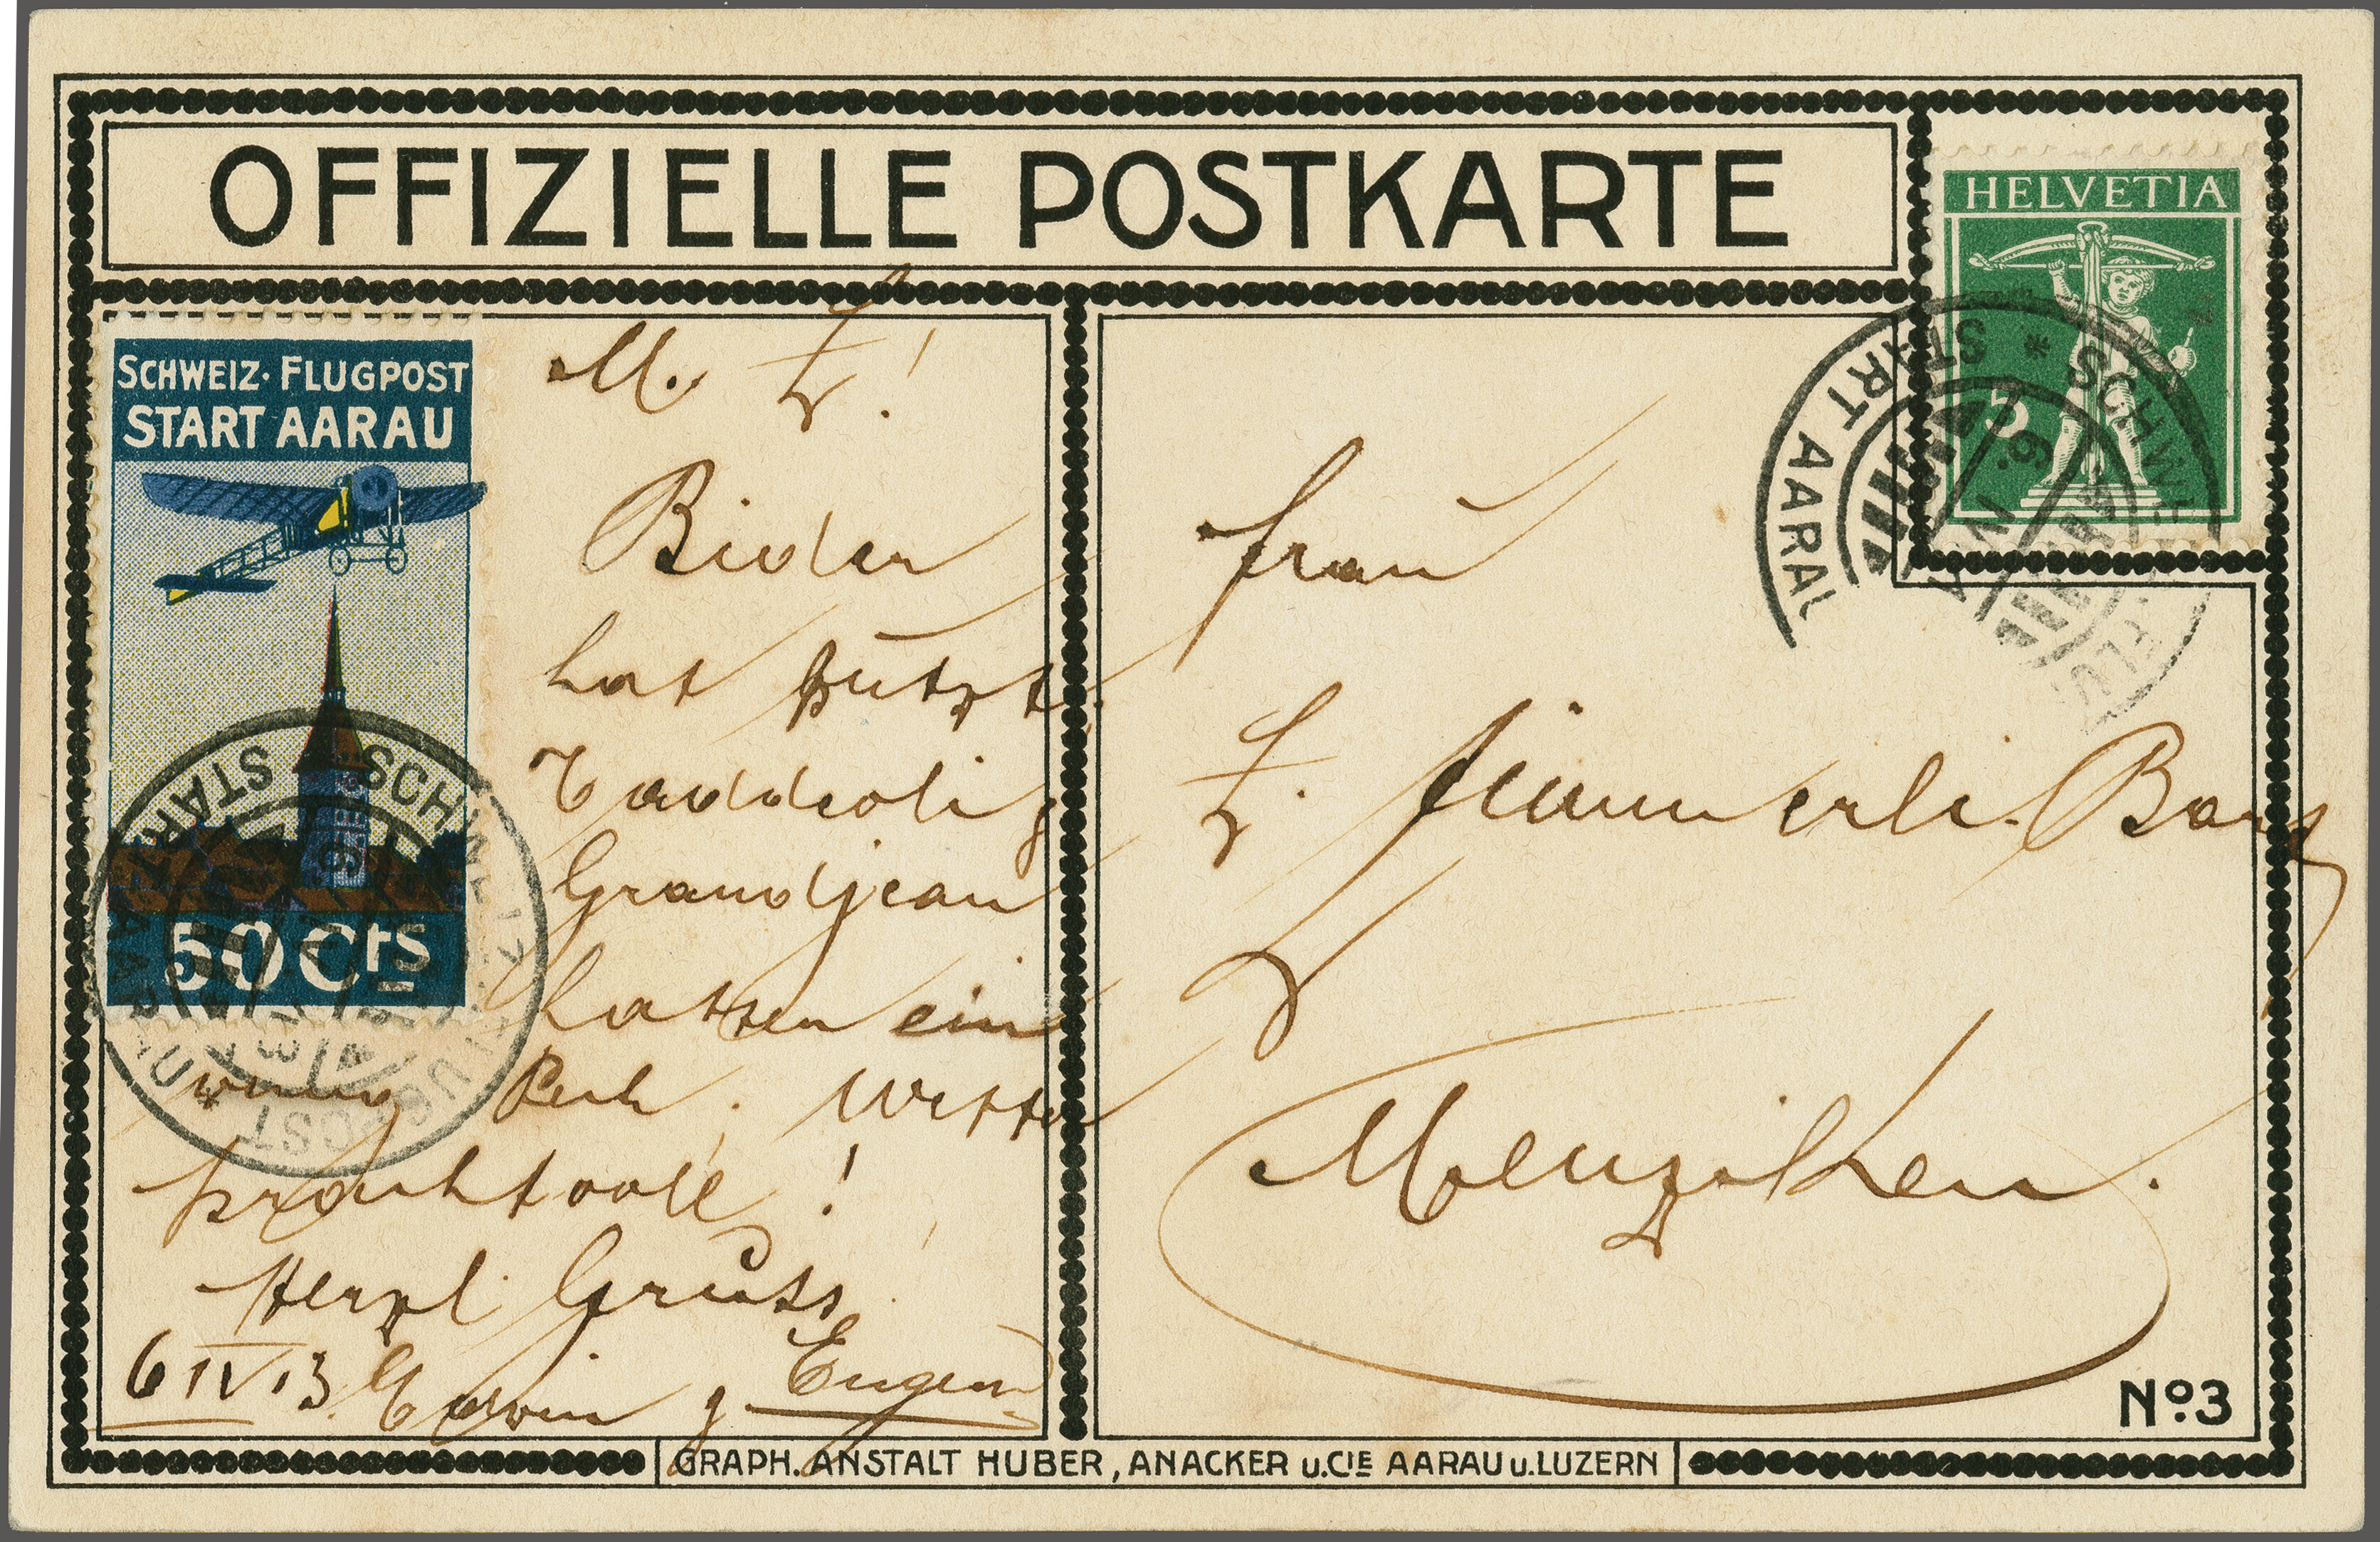 OFFIZIELLE POSTKARTE
HELVETIA
5
SCHWEIZ. FLUGPOST
START AARAU
50 Cts
SCHWEIZ. FLUGPOST
* START AARAU *
6. IV. 13
* SCHWEIZ. FLU
START AARAU
6. IV
M. L!
Bider
hat
Taddeoli &
Grandjean
hatten ein
wenig Pech. Wetter
prachtvoll!
Herzl Gruss
6 IV 13. Erwin & Eugen
Frau
L.
Menziken.
No. 3
GRAPH. ANSTALT HUBER, ANACKER u. CIE AARAU u. LUZERN